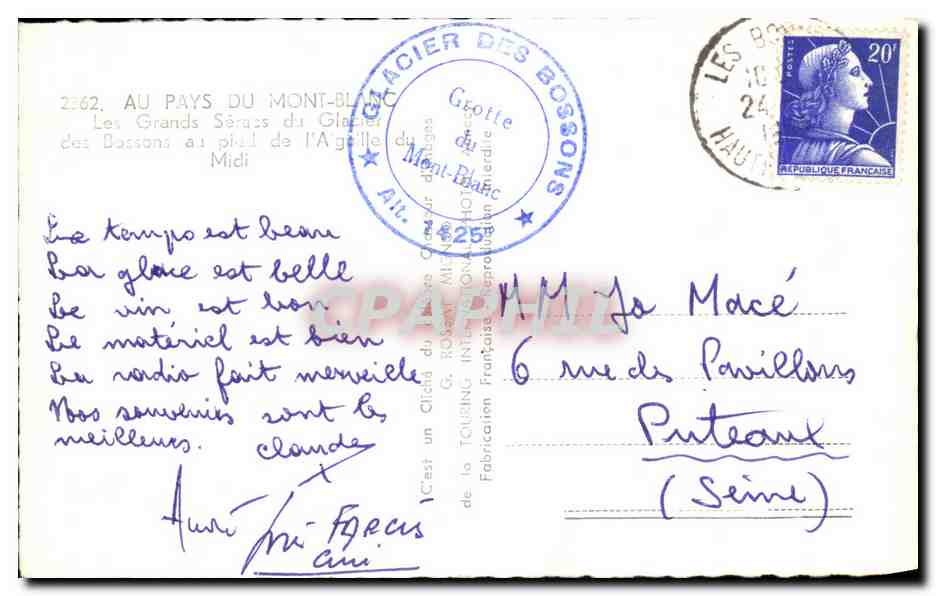 2362. AU PAYS DU MONT-BLANC
Les Grands Séracs du Glacier
des Bossons au pied de l'Aiguille du
Midi
GLACIER DES BOSSONS
Grotte
du
Mont-Blanc
Alt. 1425
LES BO
24
HAUTE
POSTES
20F
REPUBLIQUE FRANÇAISE
Le temps est beau
La glace est belle
Le vin est bon
Le matériel est bien
La radio fait merveille
Nos souvenirs sont les
meilleurs.
Claude
André
FARCIS
C'est un Cliché du Chasseur d'Images
G. ROSSAT MIGNOD
de la TOURING INTERNATIONAL PHOTO
Fabrication Française Reproduction Interdite
CPAPHIL
MM Jo Macé
6 rue des Pavillons
Puteaux
(Seine)